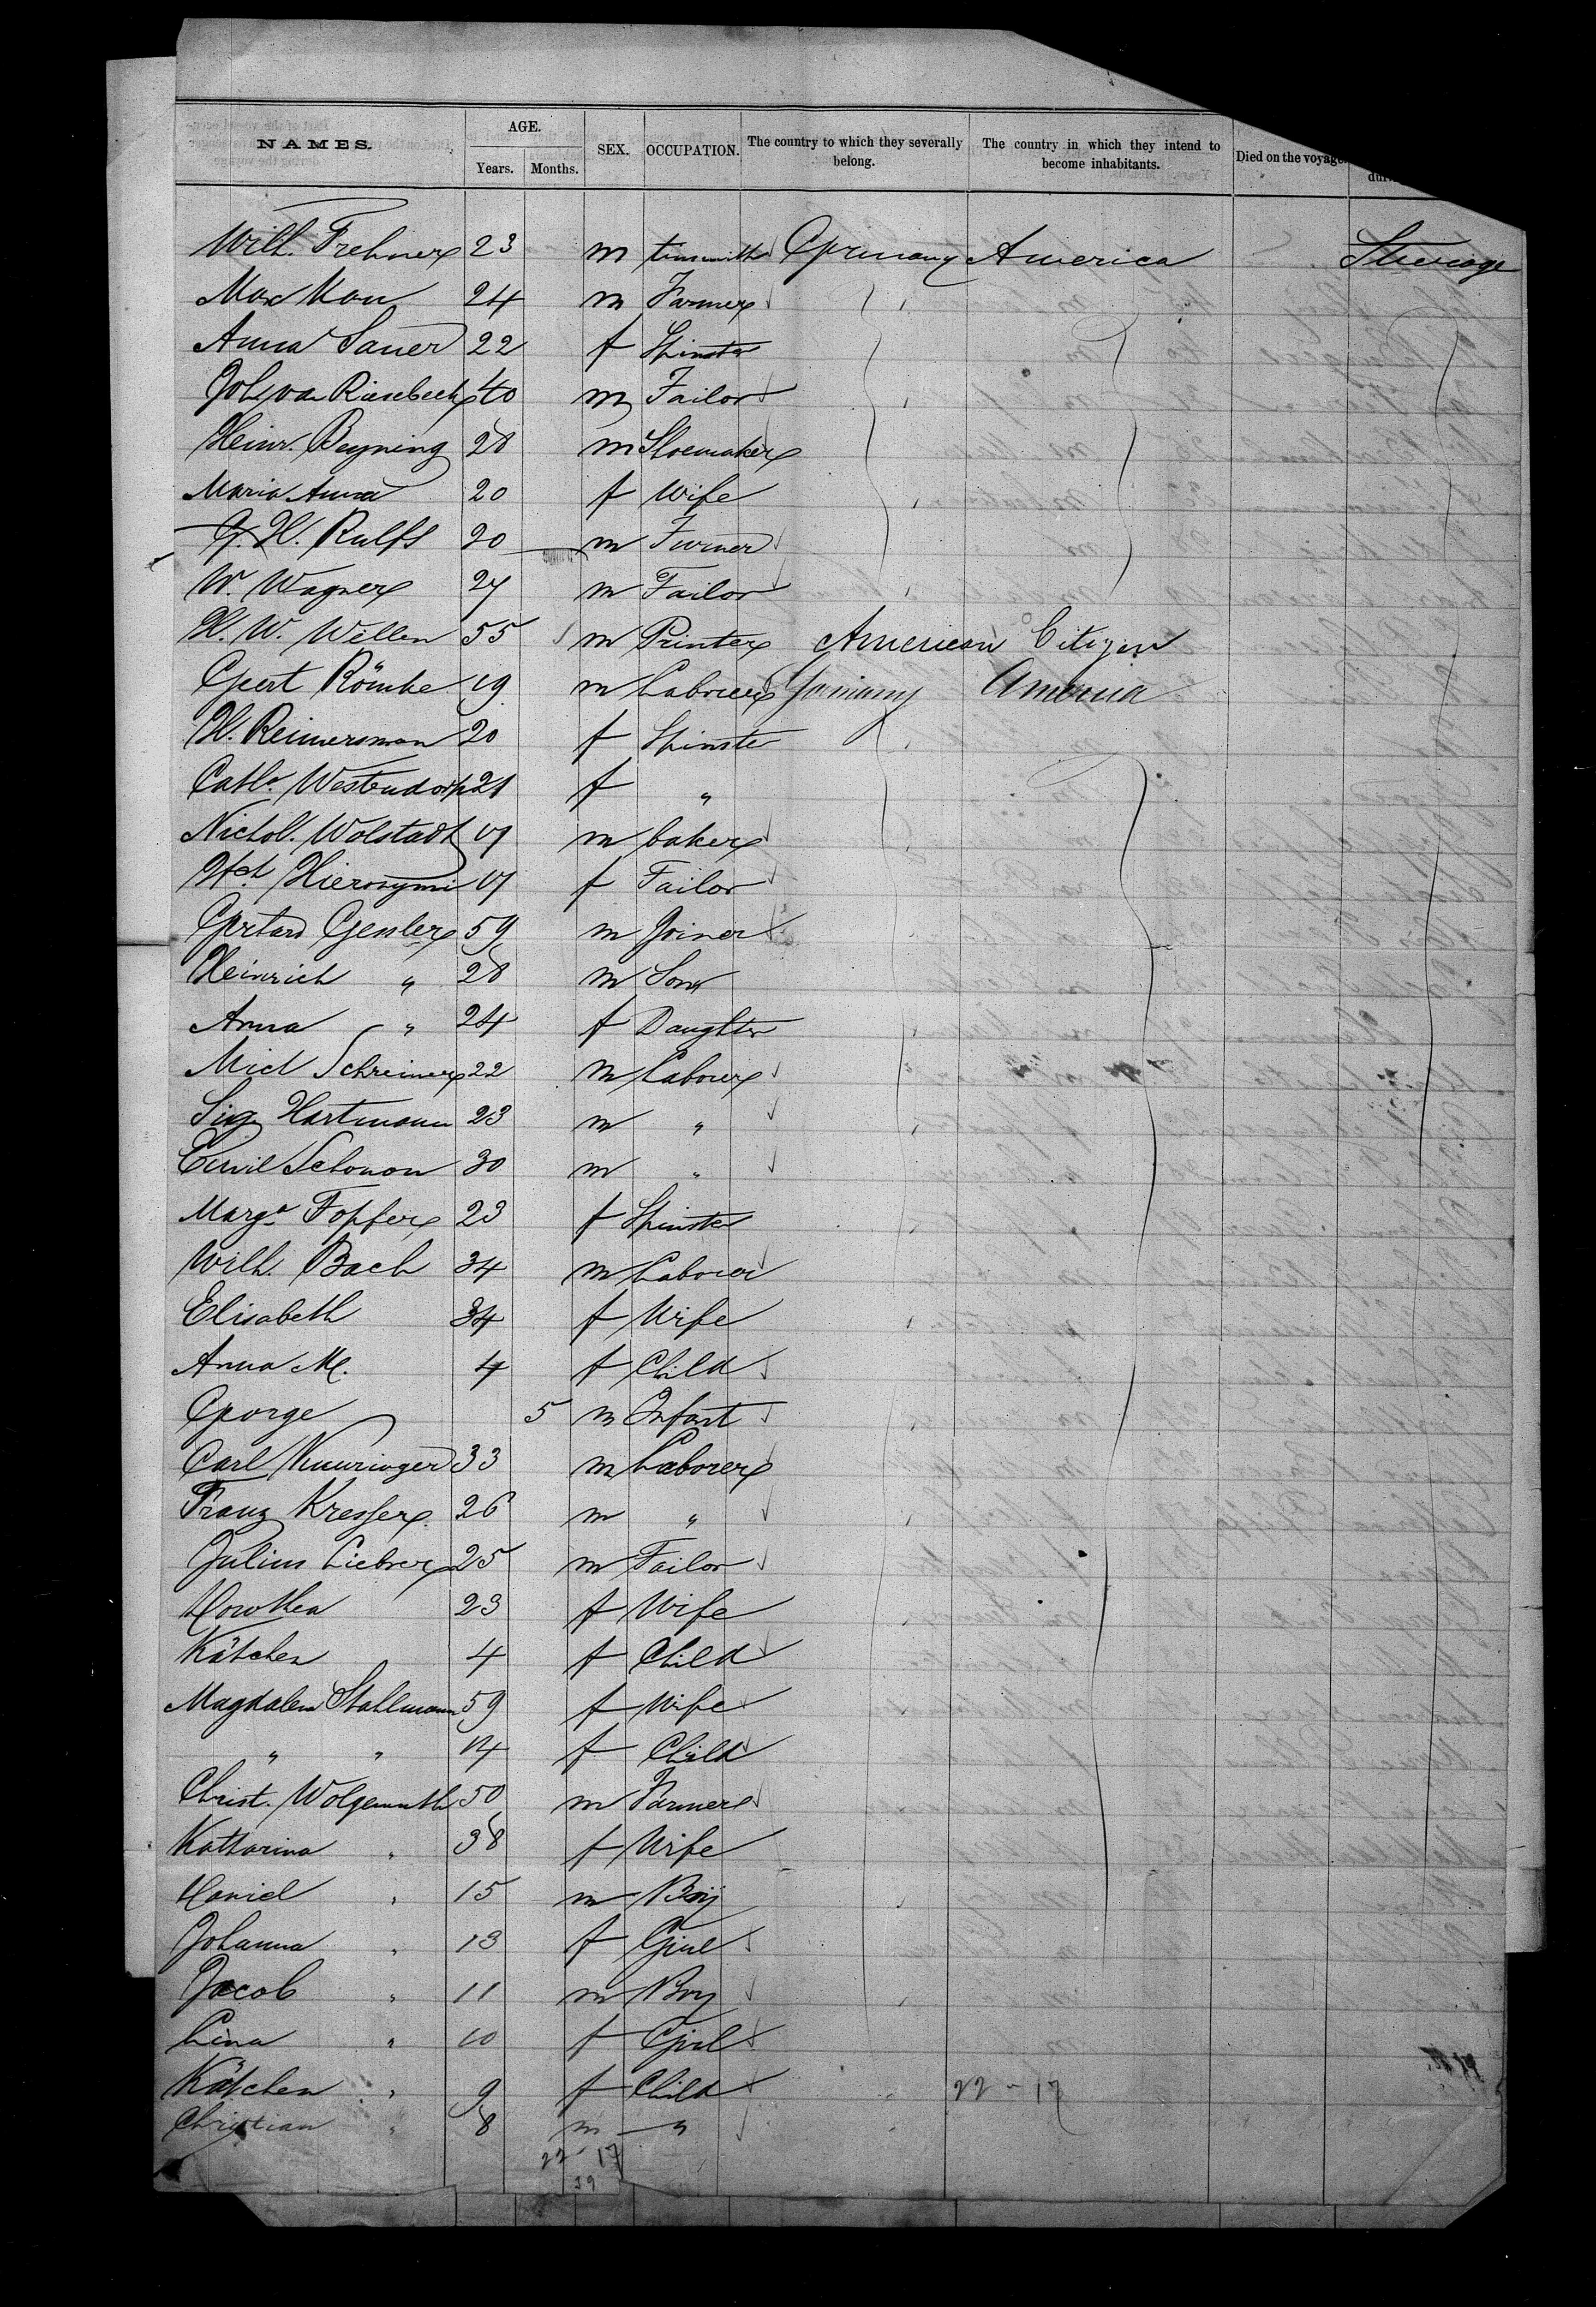 NAMES. AGE. SEX. OCCUPATION. The country to which they severally belong. The country in which they intend to become inhabitants. Died on the voyage.
Years. Months.
Wilh. Frehner 23 m tinsmith Germany America Steerage
Max Kau 24 m Farmer
Anna Sauer 22 f Spinster
Joh. van Riesebeck 40 m Tailor
Heinr. Beyning 28 m Shoemaker
Maria Anna 20 f Wife
G. H. Rulfs 20 m Farmer
W. Wagner 27 m Tailor
H. W. Wellen 55 m Printer American Citizen
Geert Römke 19 m Labourer Germany America
H. Reimersman 20 f Spinster
Cath.a Westendorp 21 f "
Nichol. Wolstadt 17 m baker
Hch. Hieronymi 17 f Tailor
Gerhard Gensler 59 m Joiner
Heinrich " 28 m Son
Anna " 24 f Daughter
Mich Schreiner 22 m Labourer
Sig. Hartmann 23 m "
Emil Schonon 30 m "
Marg.a Topfer 23 f Spinster
Wilh. Bach 34 m Laborer
Elisabeth 34 f Wife
Anna M. 4 f Child
George 5 m Infant
Carl 33 m Laborer
Franz Kresser 26 m "
Julius Liebrer 25 m Tailor
Dorothea 23 f Wife
Kätchen 4 f Child
Magdalena Stahlmann 59 f Wife
" " 14 f Child
Christ. Wolgemuth 50 m Farmer
Katharina " 38 f Wife
Daniel " 15 m Boy
Johanna " 13 f Girl
Jacob " 11 m Boy
Lina " 10 f Girl
Kätchen " 9 f Child 22 - 17
Christian " 8 m "
22 - 17
39